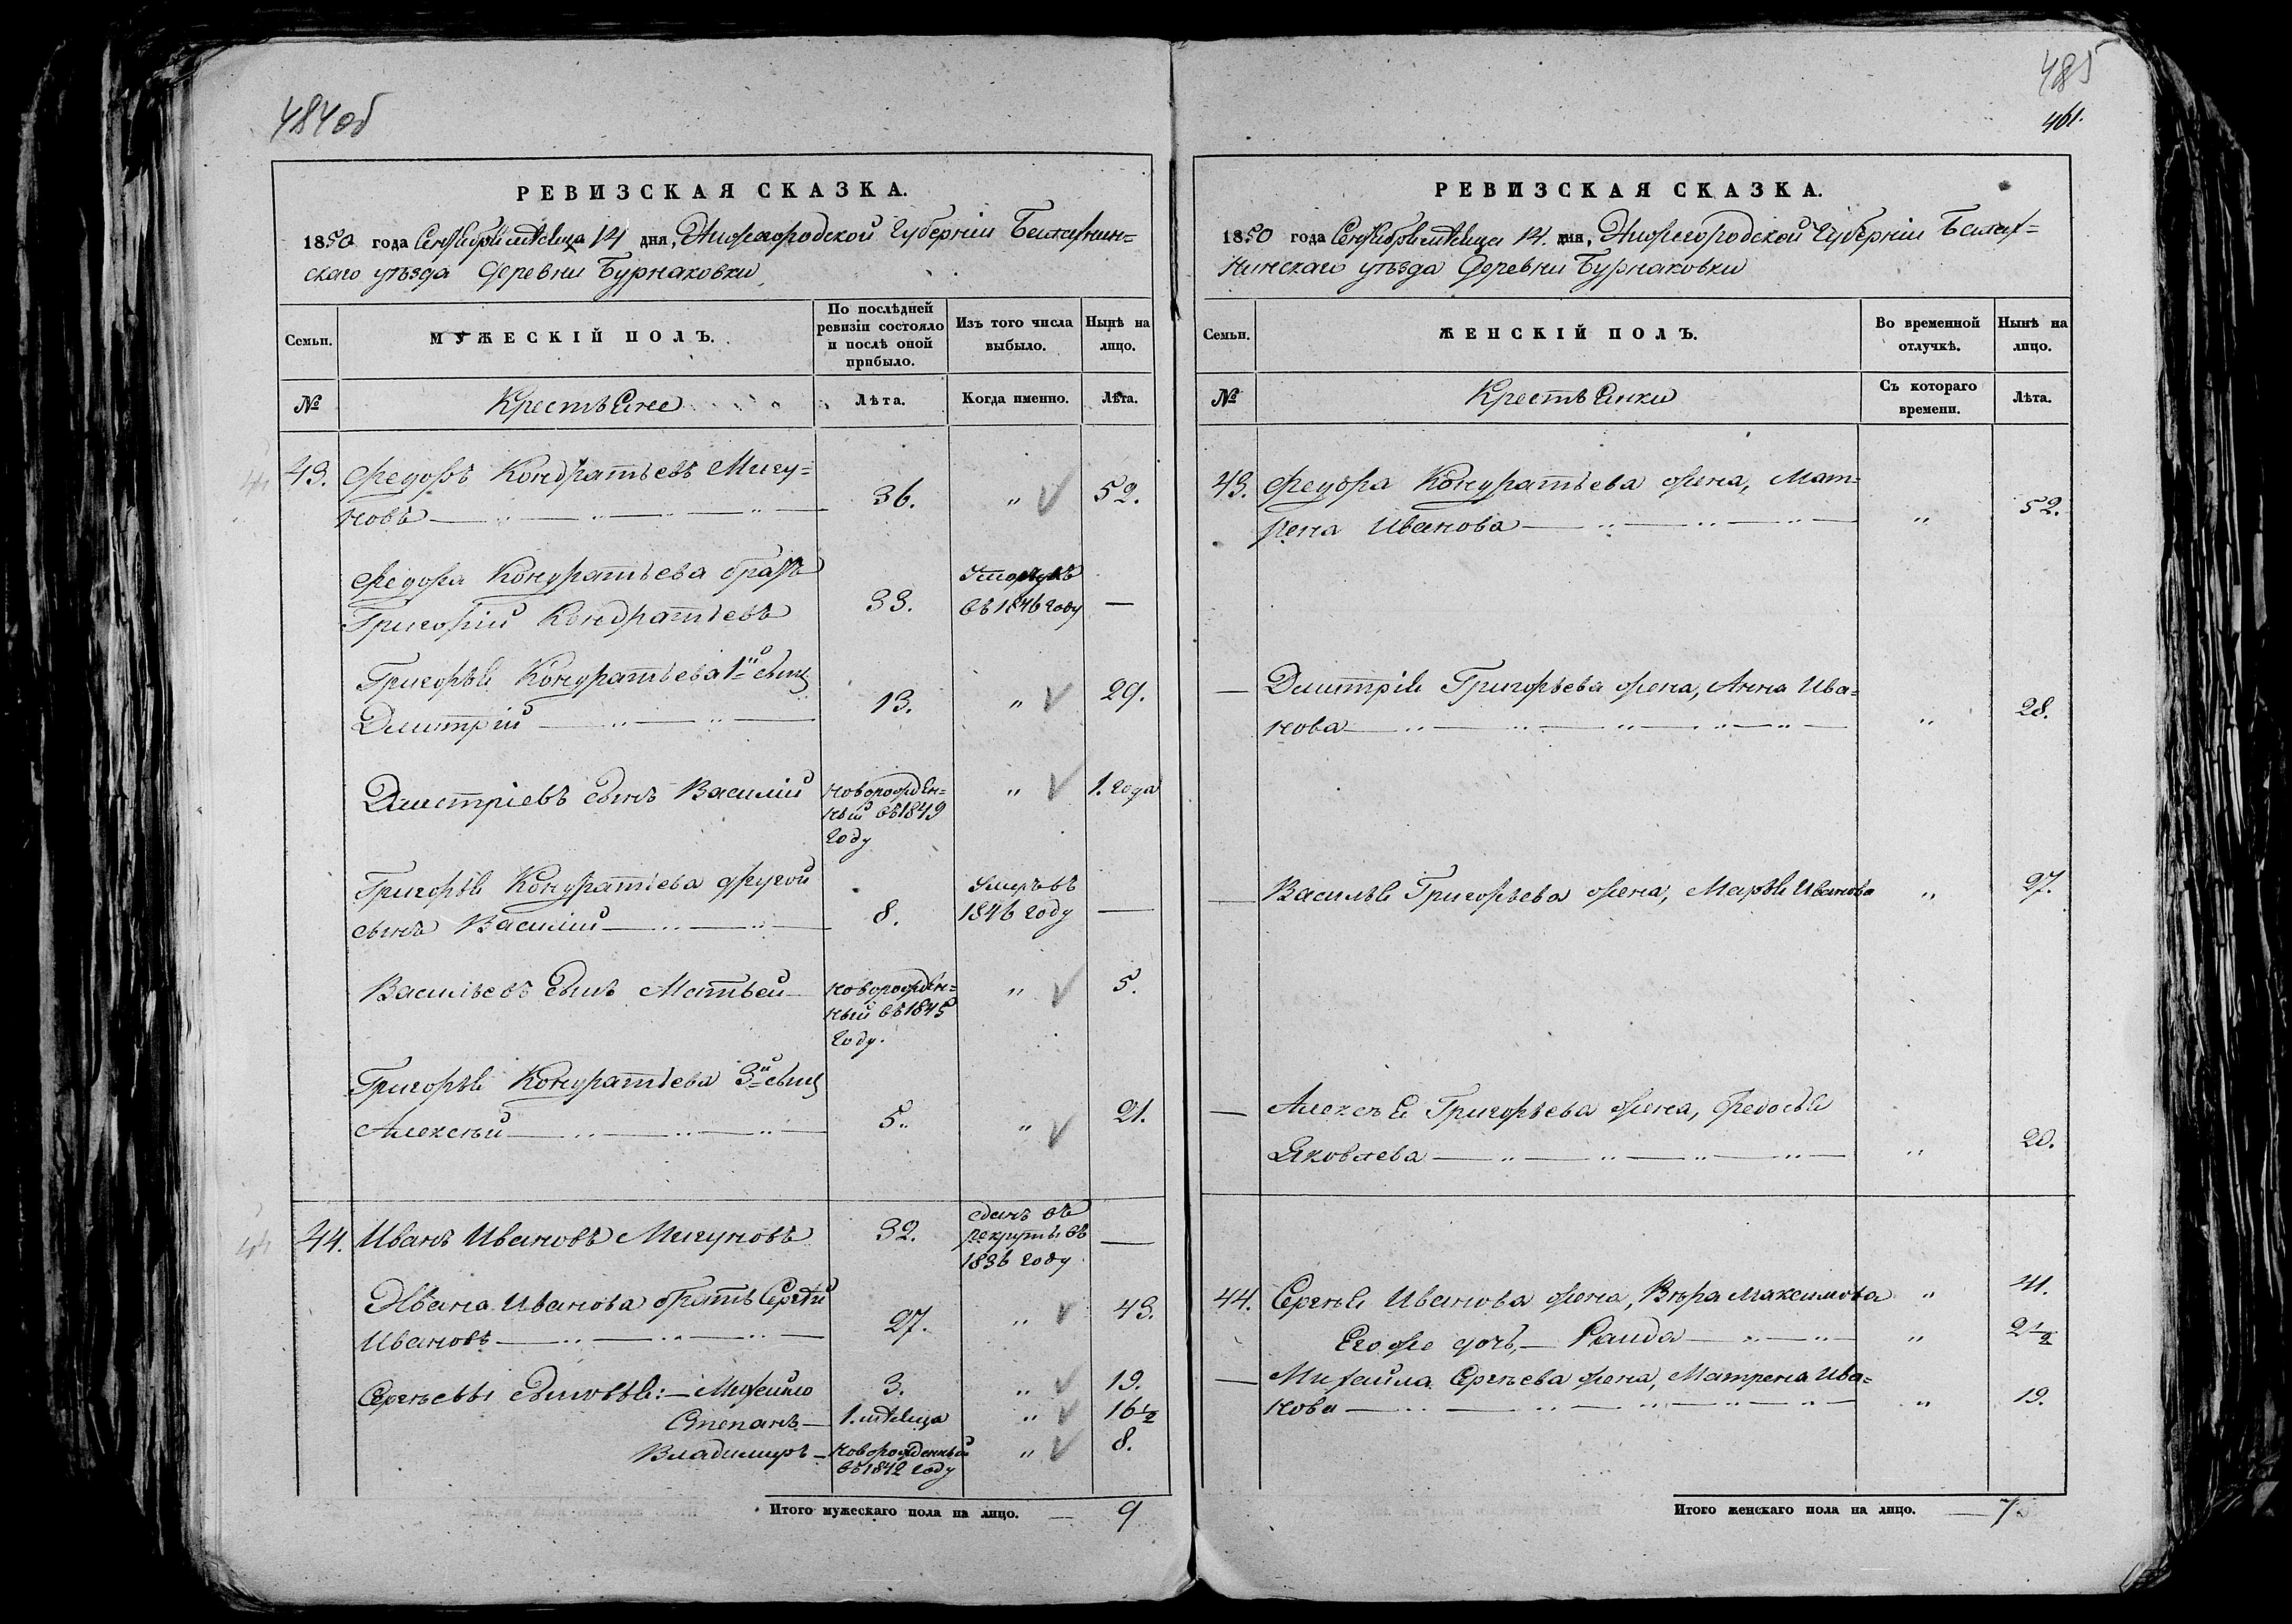 484об
РЕВИЗСКАЯ СКАЗКА.
1850 года Сентября мѣсяца 14 дня, Нижегородской Губерніи Балахнин=
скаго уѣзда Деревни Бурнаковки
Семьи. МУЖЕСКІЙ ПОЛЪ. По послѣдней ревизіи состояло и послѣ оной прибыло. Изъ того числа выбыло. Нынѣ на лицо.
№ Крестьяне Лѣта. Когда именно. Лѣта.
43. Федоръ Кондратьевъ Мигу=
новъ 36. " 52.
Федора Кондратьева братъ
Григорій Кондратьевъ 33. въ 1846 году —
Григорья Кондратьева 1й сынъ
Дмитрій 13. " 29.
Дмитріевъ сынъ Василій новорожден= " 1. года
ный въ 1849
году
Григорья Кондратьева другой Умеръ въ
сынъ Василій 8. 1846 году —
Васильевъ сынъ Матвей новорожден= " 5.
ный въ 1845
году.
Григорья Кондратьева 3й сынъ
Алексѣй 5. " 21.
44. Иванъ Ивановъ Мигуновъ 32. сданъ въ —
рекруты въ
1836 году
Ивана Иванова братъ Сергѣй
Ивановъ 27. " 43.
Сергѣевы сыновья: Михайло 3. " 19.
Степанъ 1. мѣсяца " 16 1/2
Владимиръ новорожденный " 8.
въ 1842 году
Итого мужескаго пола на лицо. 9
485
461.
РЕВИЗСКАЯ СКАЗКА.
1850 года Сентября мѣсяца 14. дня, Нижегородской Губерніи Балах=
нинскаго уѣзда Деревни Бурнаковки
Семьи. ЖЕНСКІЙ ПОЛЪ. Во временной отлучкѣ. Нынѣ на лицо.
№ Крестьянки Съ котораго времени. Лѣта.
43. Федора Кондратьева жена, Мат=
рена Иванова " 52.
— Дмитрія Григорьева жена, Анна Ива=
нова " 28.
— Василья Григорьева жена, Марья Иванова " 27.
— Алексѣя Григорьева жена, Федосья
Яковлева " 20.
44. Сергѣя Иванова жена, Вѣра Максимова " 41.
Его же дочь, — Раида " 2 1/2
— Михайла Сергѣева жена, Матрена Ива=
нова " 19.
Итого женскаго пола на лицо. — 7.